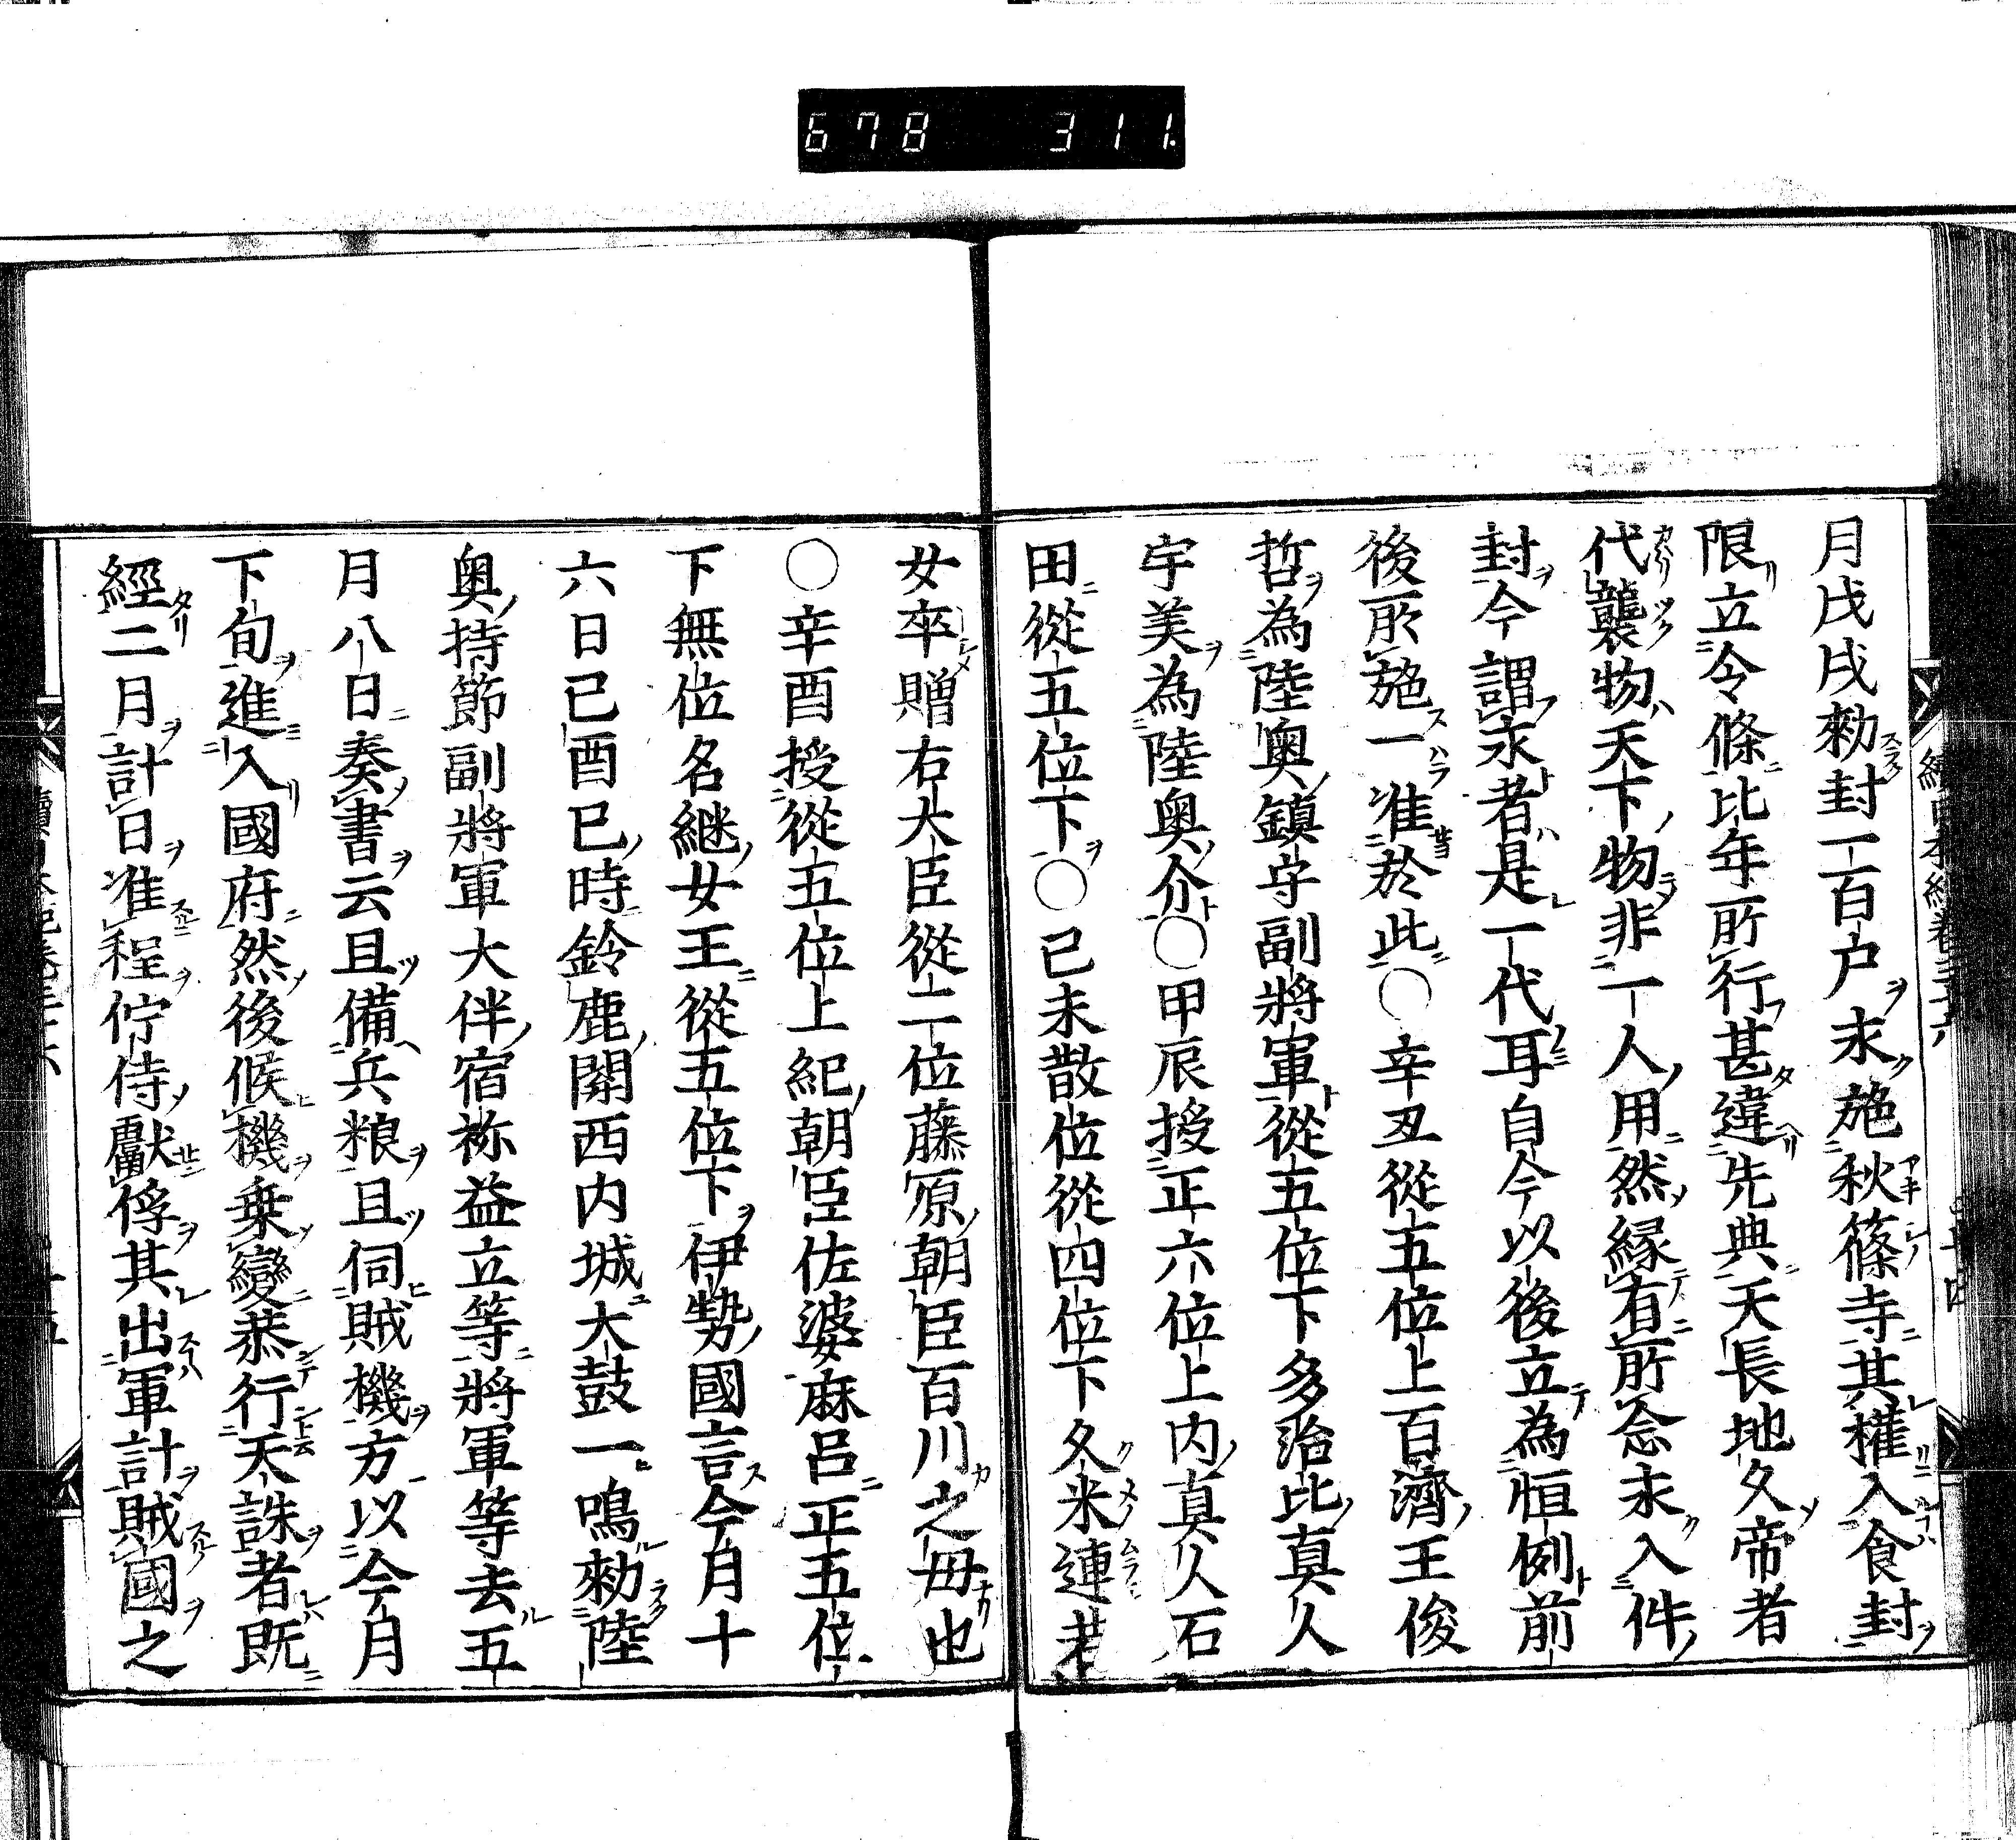 678 311
月戊戌勑封一百戸永施秋篠寺其權入食封
限立令條比年所行甚違先典天長地久帝者
代襲物天下物非一人用然縁有所念永入件
封今謂永者是一代耳自今以後立為恒例前
後所施一准於此〇辛丑從五位上百濟王俊
哲為陸奧鎮守副將軍從五位下多治比真人
宇美為陸奥介〇甲辰授正六位上内真人石
田從五位下〇己未散位從四位下久米連若
女卒贈右大臣從二位藤原朝臣百川之母也
〇辛酉授從五位上紀朝臣佐婆麻呂正五位
下無位名継女王從五位下伊勢國言今月十
六日己酉巳時鈴鹿關西内城大鼓一鳴勑陸
奥持節副將軍大伴宿祢益立等將軍等去五
月八日奏書云且備兵粮且伺賊機方以今月
下旬進入國府然後候機乗變恭行天誅者既
經二月計日准程佇待獻俘其出軍計賊國之